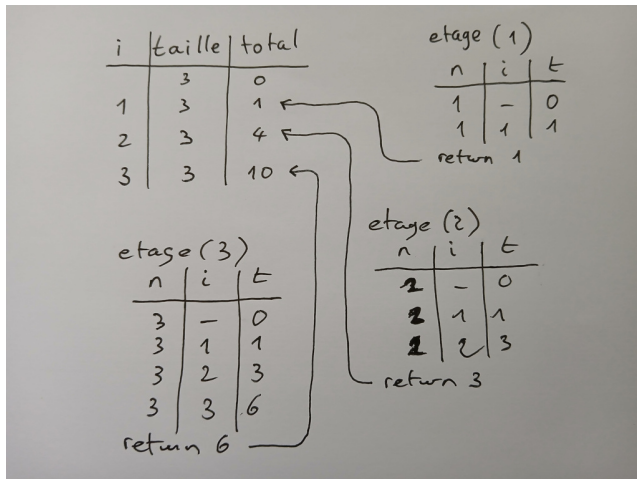 i | taille | total
3 0
1 3 1
2 3 4
3 3 10
etage (1)
n | i | t
1 – 0
1 1 1
return 1
etage (2)
n | i | t
2 – 0
2 1 1
2 2 3
return 3
etage (3)
n | i | t
3 – 0
3 1 1
3 2 3
3 3 6
return 6